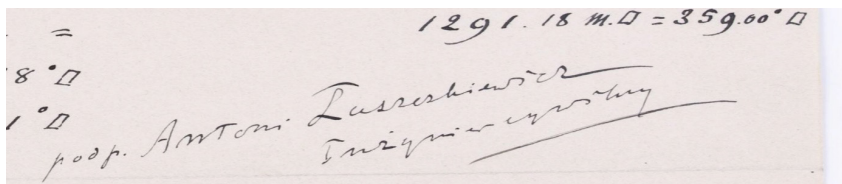 =
1291.18 m.□ = 359.00°□
8°□
1°□
podp. Antoni Łuszczkiewicz
Inżynier cywilny